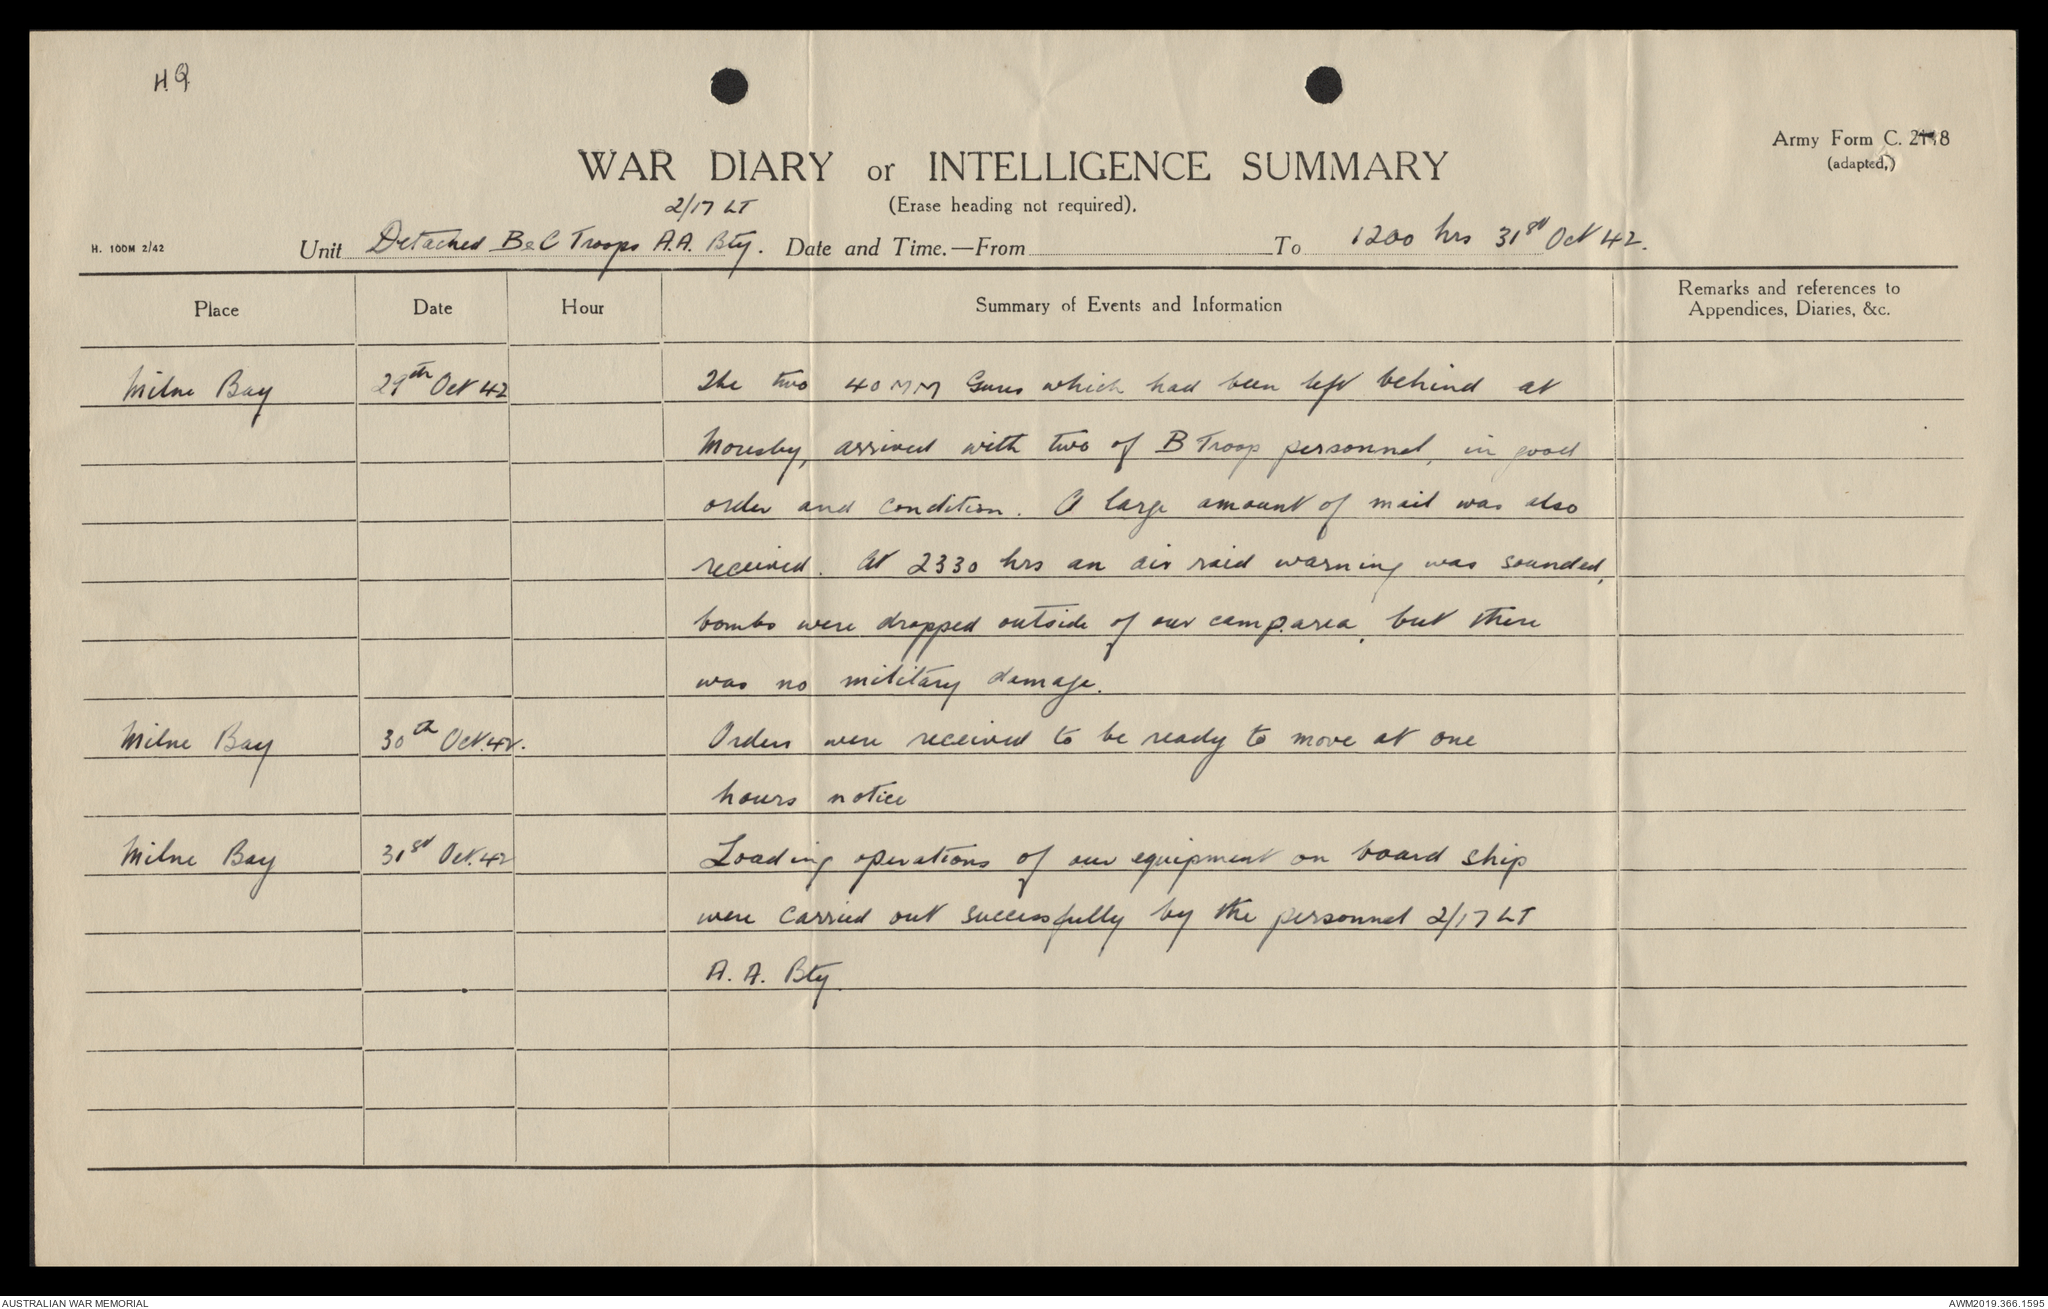 H.Q
Army Form C. 2118
(adapted,)
WAR DIARY or INTELLIGENCE SUMMARY
(Erase heading not required).
2/17 LT
H. 100M 2/42
Unit Detached B & C Troops A.A. Bty. Date and Time.—From To 1200 hrs 31st Oct 42.
Place Date Hour Summary of Events and Information Remarks and references to Appendices, Diaries, &c.
Milne Bay 29th Oct 42 The two 40 MM Guns which had been left behind at
Moresby, arrived with two of B Troop personnel, in good
order and condition. A large amount of mail was also
received. At 2330 hrs an air raid warning was sounded,
bombs were dropped outside of our camp area, but there
was no military damage.
Milne Bay 30th Oct. 42. Orders were received to be ready to move at one
hours notice
Milne Bay 31st Oct. 42 Loading operations of our equipment on board ship
were carried out successfully by the personnel 2/17 LT
A. A. Bty.
AUSTRALIAN WAR MEMORIAL
AWM2019.366.1595